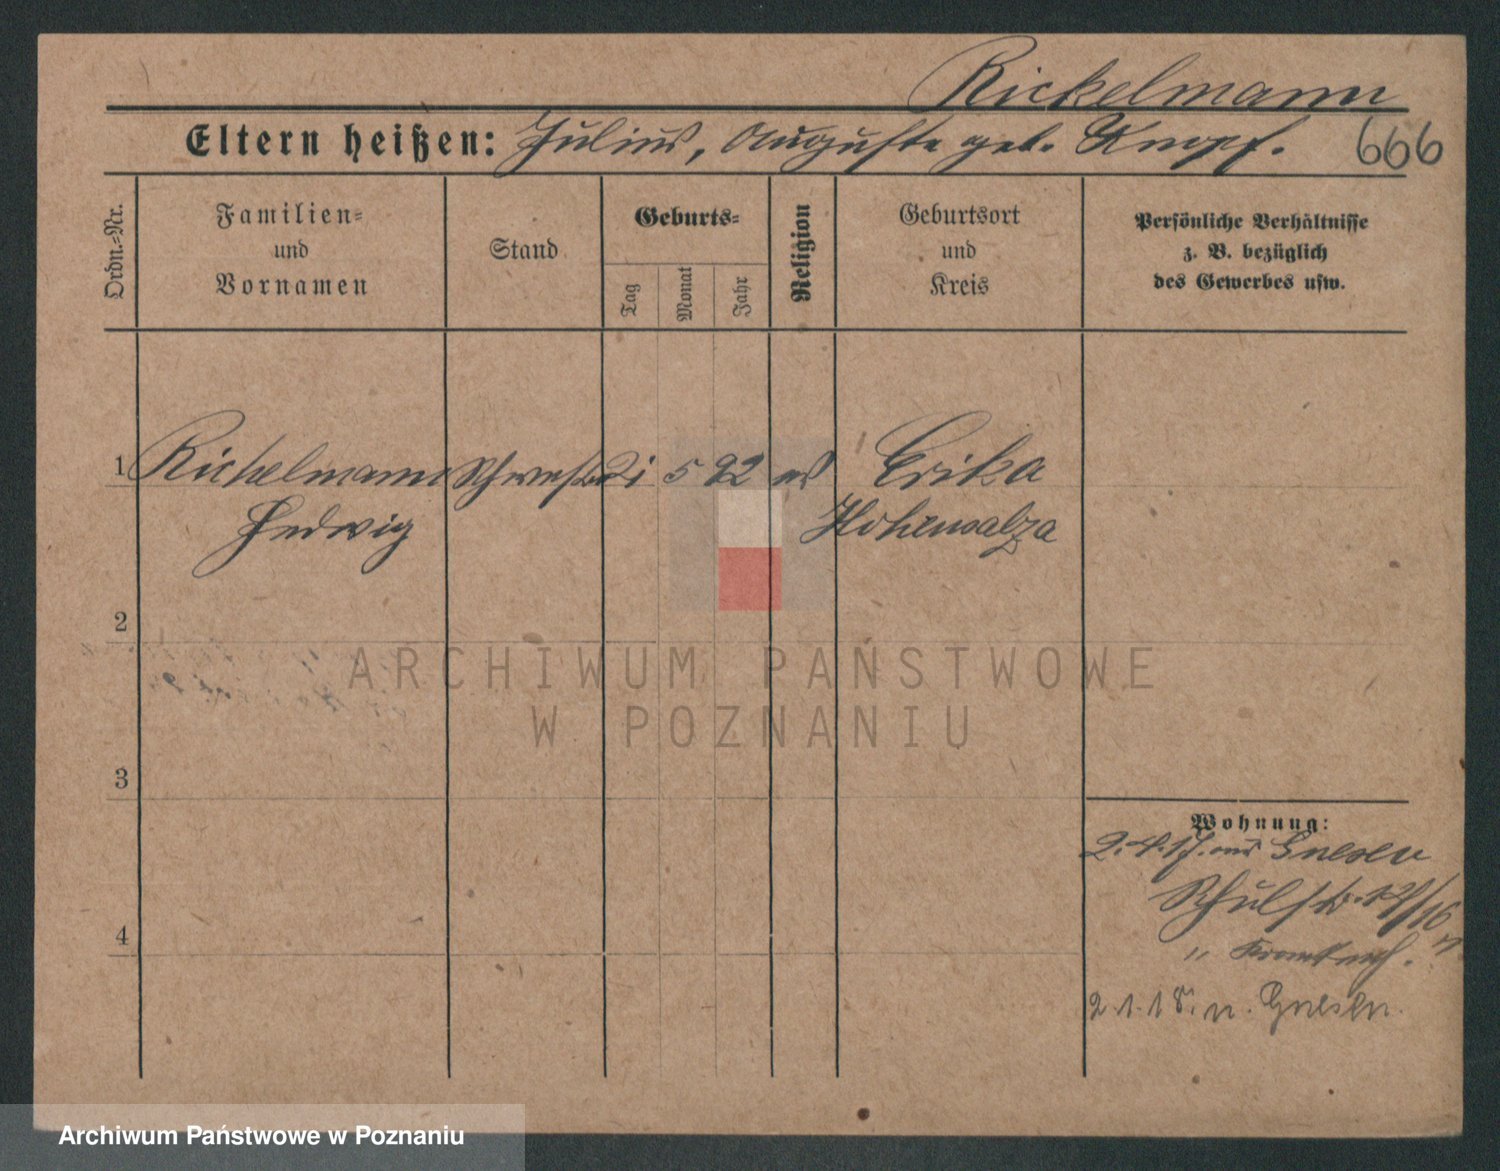 Rickelmann
Eltern heißen: Julius, Auguste geb. Knopf.
666
Ordn.=Nr.
Familien=
und
Vornamen
Stand
Geburts=
Tag
Monat
Jahr
Religion
Geburtsort
und
Kreis
Persönliche Verhältnisse
z. B. bezüglich
des Gewerbes usw.
1 Rickelmann Schwester 21 5 92 ev Erika
Hedwig Hohensalza
2
3
4
Wohnung:
2.4.17. aus Gnesen
Schulstr.
"
2.1.18. n. Gnesen.
ARCHIWUM PAŃSTWOWE
W POZNANIU
Archiwum Państwowe w Poznaniu